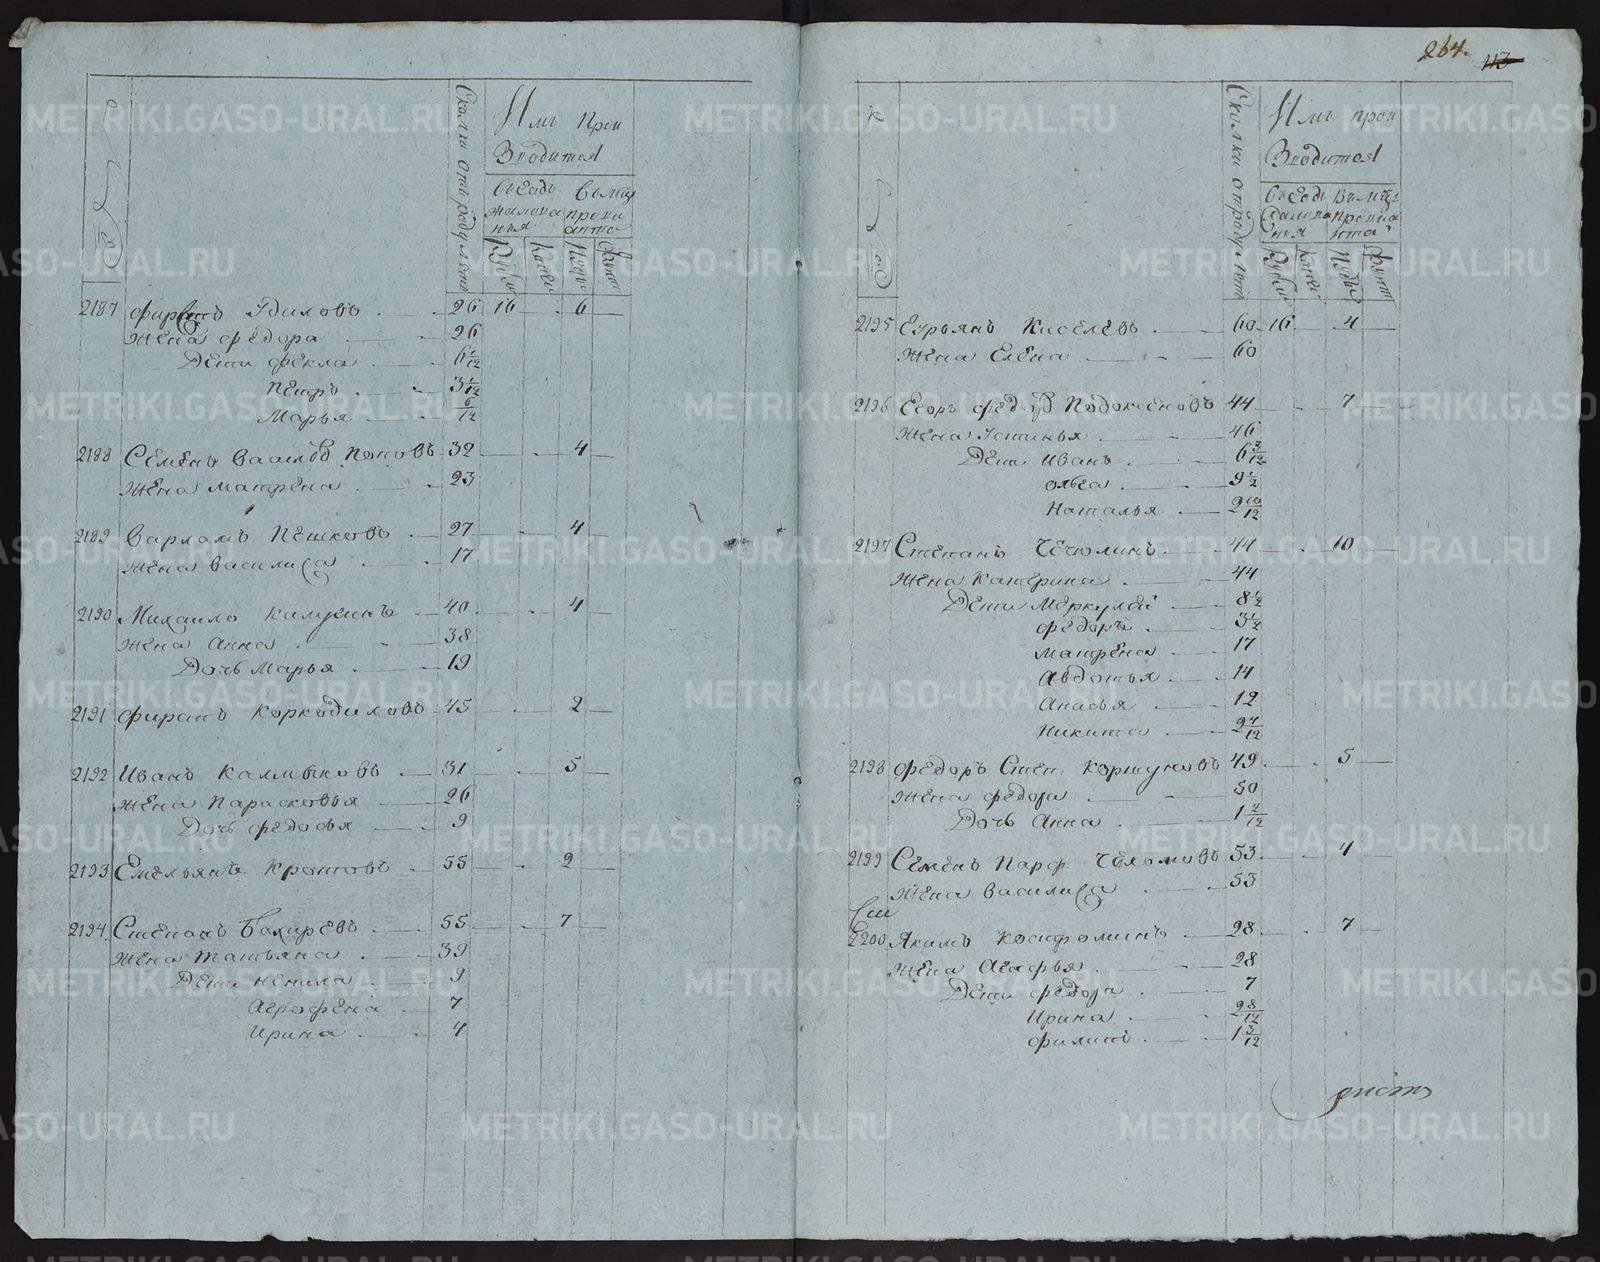 264. 113
Сколки отъ роду летъ
Имъ прои
Зводится
въ годъ
жалова
нья
въ мцъ
прови
анта
Рубли
Копеи
Пуды
Фунт
2187 Фирсъ 26 16 6
Жена Федора 26
Дети Фекла 6
Петръ 3
Марья 6/12
2188 Семенъ Васильев Поповъ 32 4
Жена Матрена 23
2189 Варламъ Пешковъ 27 4
Жена Василиса 17
2190 Михаило Калугинъ 40 4
Жена Анна 38
Дочь Марья 19
2191 Фирсъ Коркодиловъ 45 2
2192 Иванъ Калмыковъ 31 5
Жена Парасковья 26
Дочь Федосья 9
2193 Емельянъ Кротовъ 55 2
2194 Степанъ Бахиревъ 55 7
Жена Татьяна 39
Дети Ненила 9
Аграфена 7
Ирина 4
Сколки отъ роду летъ
Имъ прои
Зводится
въ годъ
жалова
нья
въ мцъ
провиа
нта
Рубли
Копеи
Пуды
Фунт
2195 Гурьянъ Киселевъ 60 16 4
Жена Елена 60
2196 Егоръ Федор Подоксеновъ 44 7
Жена Устинья 46
Дети Иванъ 6
Ольга 9 1/2
Наталья 2 10/12
2197 Степанъ Чечюлинъ 44 10
Жена Катерина 44
Дети Меркулей 8 1/2
Федоръ 3 1/2
Матрена 17
Авдотья 14
Анасья 12
Никита 2 4/12
2198 Федоръ Степ. Коршуновъ 49 5
Жена Федора 50
Дочь Анна 1 2/12
2199 Семенъ Парф. Челомовъ 53 4
Жена Василиса 53
2200 Якимъ 28 7
Жена Агафья 28
Дети Федора 7
Ирина 2 8/12
Филипъ 1 3/12
METRIKI.GASO-URAL.RU